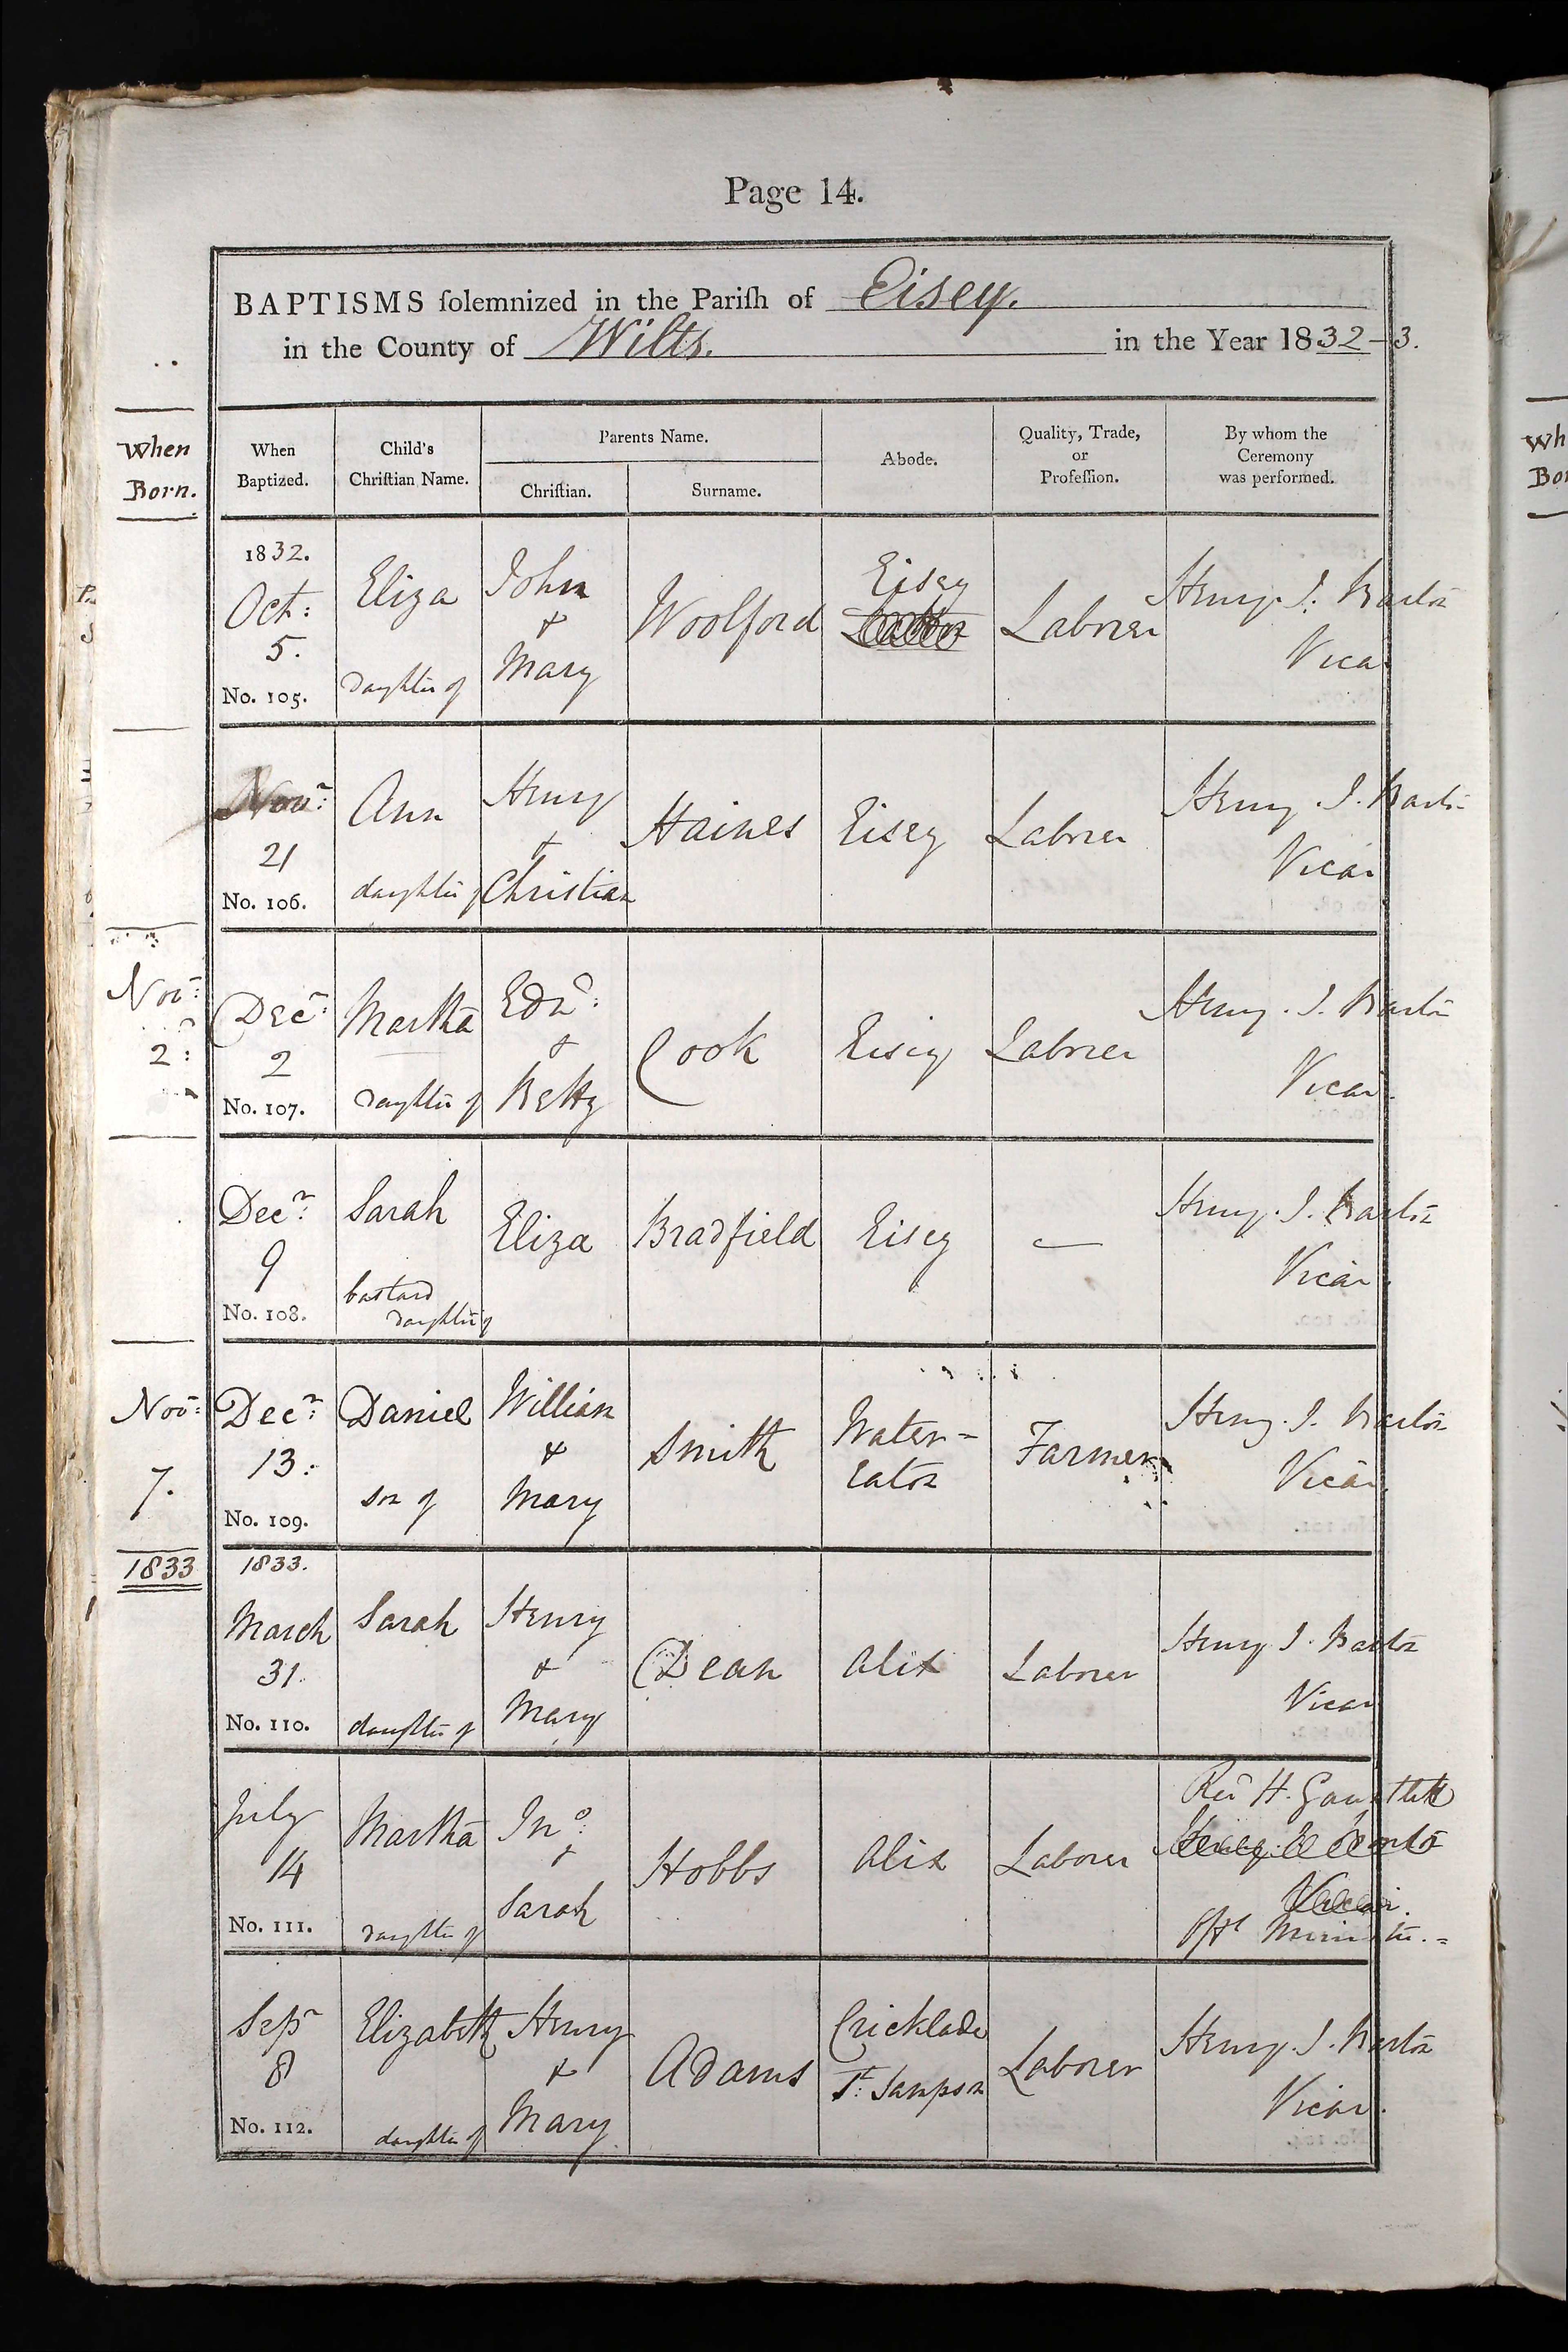 Page 14.
BAPTISMS ſolemnized in the Pariſh of Eisey.
in the County of Wilts. in the Year 1832-3.
When Born.
When Baptized.
Child's Chriſtian Name.
Parents Name.
Chriſtian.
Surname.
Abode.
Quality, Trade, or Profeſſion.
By whom the Ceremony was performed.
1832.
Oct: 5.
No. 105.
Eliza
daughter of
John & Mary
Woolford
Eisey
Laborer
Henry. J. Barton
Vicar
Novr:
21
No. 106.
Ann
daughter of
Henry & Christian
Haines
Eisey
Laborer
Henry J. Barton
Vicar
Novr:
2:
Decr:
2
No. 107.
Martha
daughter of
Edwd: & Betty
Cook
Eisey
Laborer
Henry. J. Barton
Vicar.
Decr:
9
No. 108.
Sarah
bastard
daughter of
Eliza
Bradfield
Eisey
—
Henry. J. Barton
Vicar.
Novr:
7.
Decr:
13:
No. 109.
Daniel
son of
William & Mary
Smith
Water-
Eaton
Farmer
Henry. J. Barton
Vicar.
1833
1833.
March
31.
No. 110.
Sarah
daughter of
Henry & Mary
Dean
Alix
Laborer
Henry J. Barton
Vicar
July
14
No. 111.
Martha
daughter of
Jno: & Sarah
Hobbs
Alix
Laborer
Revd H. Gauntlett
Offg Minister.=
Sepr
8
No. 112.
Elizabeth
daughter of
Henry & Mary
Adams
Cricklade
St: Sampson
Laborer
Henry. J. Barton
Vicar.
Wh
Bor